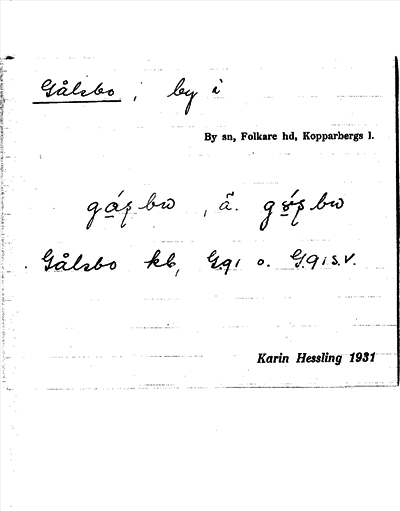 Gålsbo, by i
By sn, Folkare hd, Kopparbergs l.
bω, ä. bω
Gålsbo kb, G.q1 o. G.q1 s.v.
Karin Hessling 1931